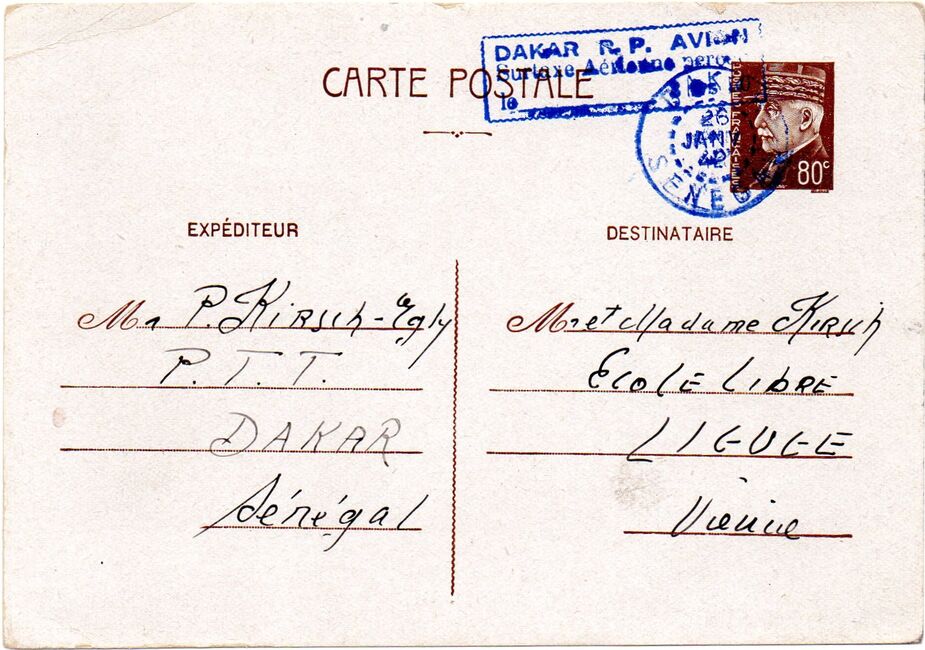 DAKAR R. P. AVION
Surtaxe Aérienne perçue
le
CARTE POSTALE
POSTES FRANÇAISES
80c
26
JANV
42
SENEGAL
EXPÉDITEUR
Mr P. Kirsch-Egly
P. T. T.
DAKAR
Sénégal
DESTINATAIRE
Mr et Madame Kirsch
Ecole Libre
LIGUGE
Vienne